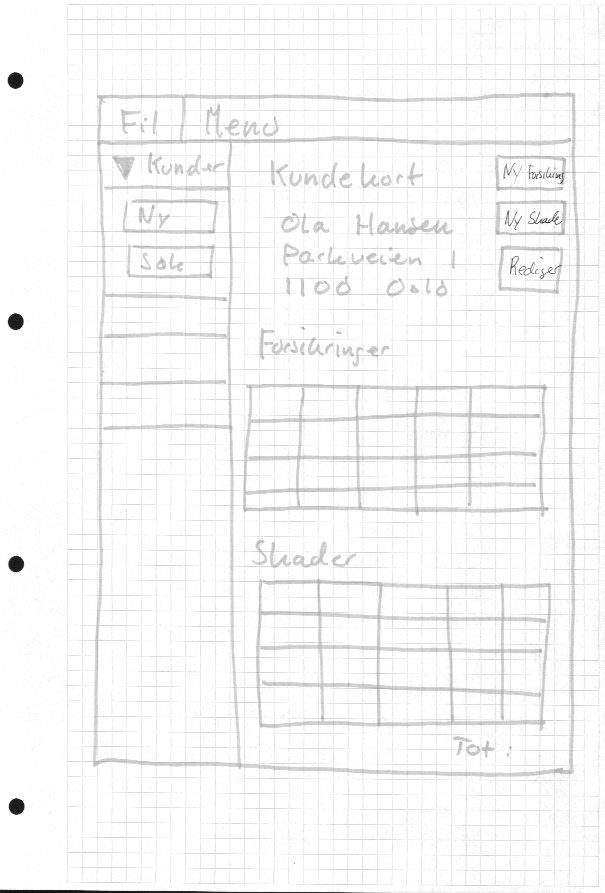 Fil Menu
Kunder
Ny
Søk
Kundekort
Ola Hansen
Parkveien 1
1100 Oslo
Ny Forsikring
Ny Skade
Rediger
Forsikringer
Skader
Tot: